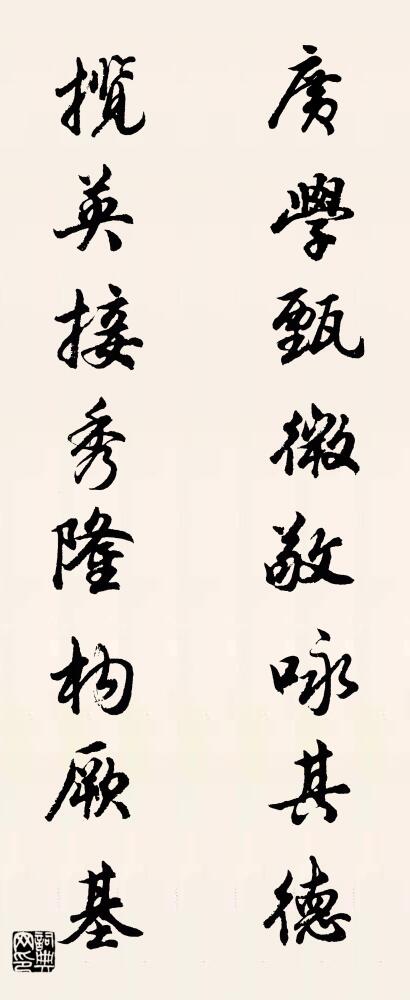 廣學甄微敬咏其德
攬英接秀隆构厥基
詞典网印